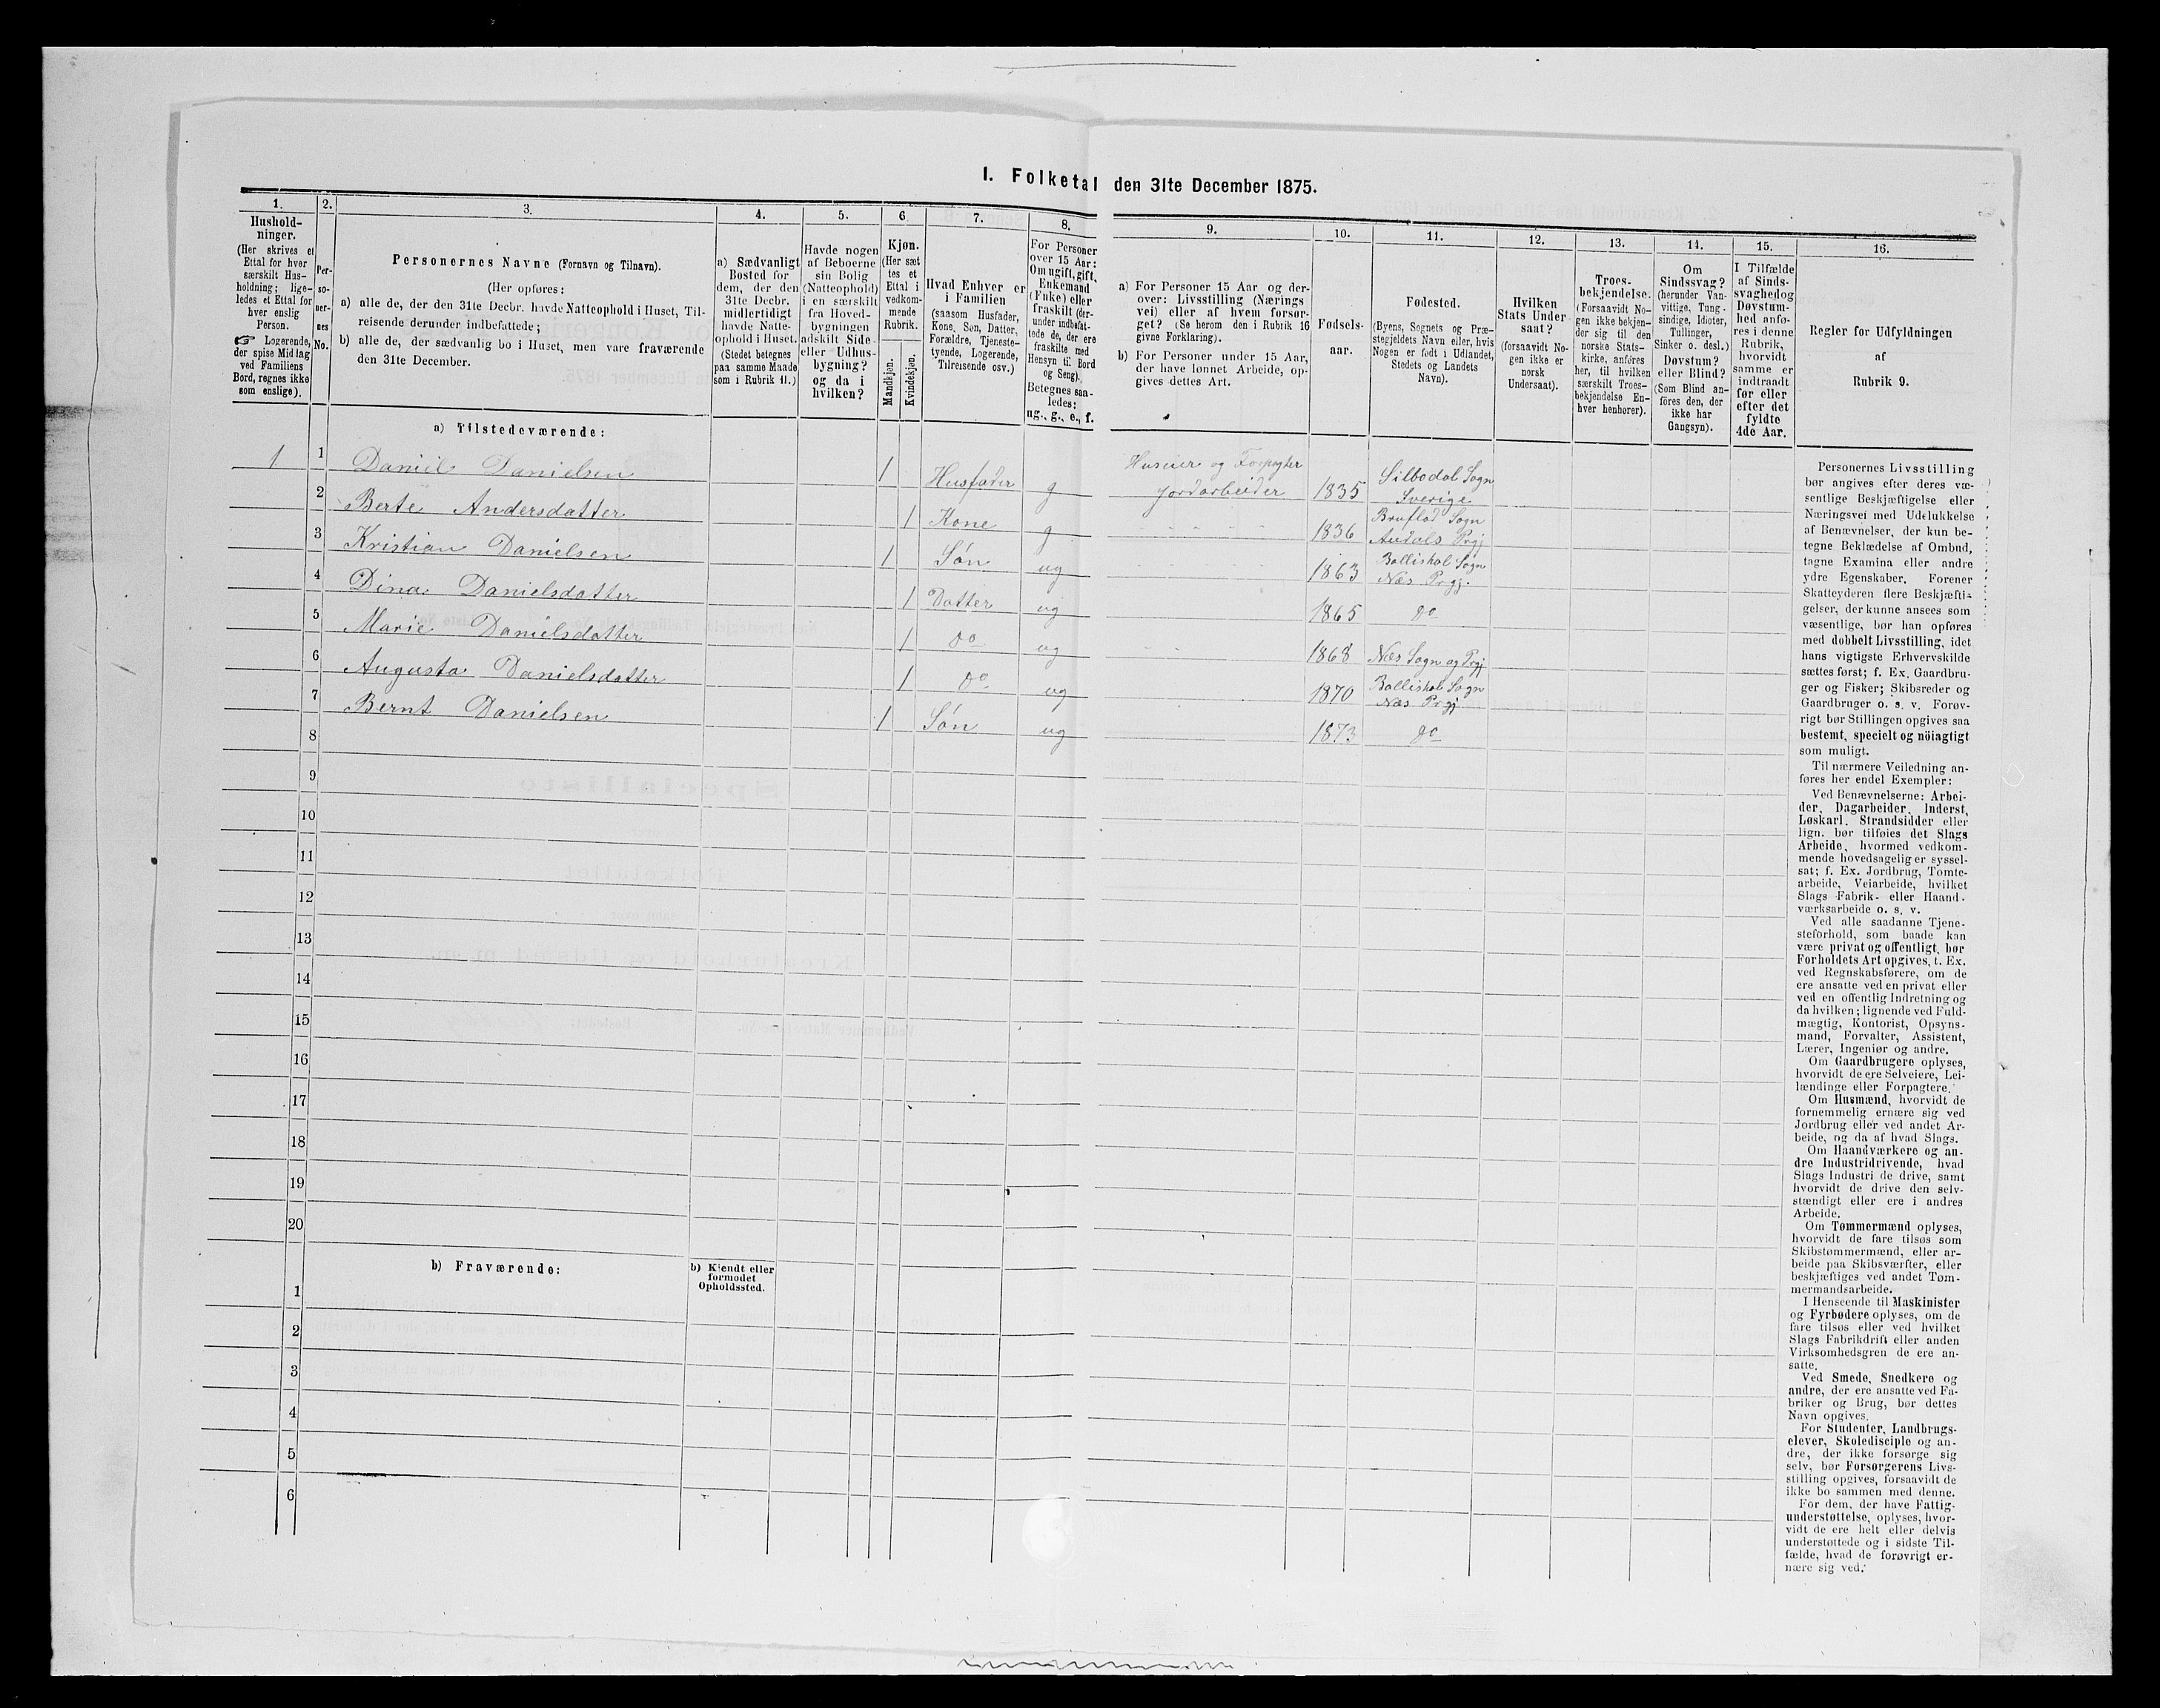 I. Folketal den 31te December 1875.
1.
Hushold-
ninger.
(Her skrives et
Ettal for hver
særskilt Hus-
holdning; lige-
ledes et Ettal for
hver enslig
Person.
☞ Logerende,
der spise Middag
ved Familiens
Bord, regnes ikke
som enslige).
2.
Per-
so-
ner-
nes
No.
3.
Personernes Navne (Fornavn og Tilnavn).
(Her opføres:
a) alle de, der den 31te Decbr. havde Natteophold i Huset, Til-
reisende derunder indbefattede;
b) alle de, der sædvanlig bo i Huset, men vare fraværende
den 31te December.
4.
a) Sædvanligt
Bosted for
dem, der den
31te Decbr.
midlertidigt
havde Natte-
ophold i Huset.
(Stedet betegnes
paa samme Maade
som i Rubrik 11.)
5.
Havde nogen
af Beboerne
sin Bolig
(Natteophold)
i en særskilt
fra Hoved-
bygningen
adskilt Side-
eller Udhus-
bygning?
og da i
hvilken?
6
Kjøn.
(Her sæt
tes et
Ettal i
vedkom-
mende
Rubrik.
Mandkjøn.
Kvindekjøn.
7.
Hvad Enhver er
i Familien
(saasom Husfader,
Kone, Søn, Datter,
Forældre, Tjeneste-
tyende, Logerende,
Tilreisende osv.)
8.
For Personer
over 15 Aar:
Om ugift, gift,
Enkemand
(Enke) eller
fraskilt (der-
under indbefat-
tede de, der ere
fraskilte med
Hensyn til Bord
og Seng).
Betegnes saa-
ledes:
ug., g., e., f.
9.
a) For Personer 15 Aar og der-
over: Livsstilling (Nærings
vei) eller af hvem forsør-
get? (Se herom den i Rubrik 16
givne Forklaring).
b) For Personer under 15 Aar,
der have lønnet Arbeide, op-
gives dettes Art.
10.
Fødsels-
aar.
11.
Fødested.
(Byens, Sognets og Præ-
stegjeldets Navn eller, hvis
Nogen er født i Udlandet,
Stedets og Landets
Navn).
12.
Hvilken
Stats Under
saat?
(forsaavidt No-
gen ikke er
norsk
Undersaat).
13.
Troes-
bekjendelse.
(Forsaavidt No-
gen ikke bekjen-
der sig til den
norske Stats-
kirke, anføres
her, til hvilken
særskilt Troes-
bekjendelse En-
hver henhører).
14.
Om
Sindssvag?
(herunder Van-
vittige, Tung-
sindige, Idioter,
Tullinger,
Sinker o. desl.)
Døvstum?
eller Blind?
(Som Blind an-
föres den, der
ikke har
Gangsyn).
15.
I Tilfælde
af Sinds-
svaghed og
Døvstum-
hed anfø-
res i denne
Rubrik,
hvorvidt
samme er
indtraadt
før eller
efter det
fyldte
4de Aar.
16.
Regler for Udfyldningen
af
Rubrik 9.
a) Tilstedeværende:
1 1 Daniel Danielsen 1 Husfader g Huseier og Forpagter Jordarbeider 1835 Silbodal Sogn Sverige
2 Berte Andersdatter 1 Kone g 1836 Bruflad Sogn Aurdals Prgj
3 Kristian Danielsen 1 Søn ug 1863 Ballishol Sogn Næs Prgj.
4 Dina Danielsdatter 1 Datter ug 1865 do
5 Marie Danielsdatter 1 do ug 1868 Næs Sogn og Prgj
6 Augusta Danielsdatter 1 do ug 1870 Ballishol Sogn Næs Prgj
7 Bernt Danielsen 1 Søn ug 1873 do
8
9
10
11
12
13
14
15
16
17
18
19
20
b) Fraværende:
b) Kjendt eller
formodet
Opholdssted.
1
2
3
4
5
6
Personernes Livsstilling
bør angives efter deres væ-
sentlige Beskjæftigelse eller
Næringsvei med Udelukkelse
af Benævnelser, der kun be-
tegne Beklædelse af Ombud,
tagne Examina eller andre
ydre Egenskaber. Forener
Skatteyderen flere Beskjæfti-
gelser, der kunne ansees som
væsentlige, bør han opføres
med dobbelt Livsstilling, idet
hans vigtigste Erhvervskilde
sættes først; f. Ex. Gaardbru-
ger og Fisker; Skibsreder og
Gaardbruger o. s. v. Forøv-
rigt bør Stillingen opgives saa
bestemt, specielt og nöiagtigt
som muligt.
Til nærmere Veiledning an-
føres her endel Exempler:
Ved Benævnelserne: Arbei-
der, Dagarbeider, Inderst,
Løskarl, Strandsidder eller
lign. bør tilføies det Slags
Arbeide, hvormed vedkom-
mende hovedsagelig er syssel-
sat; f. Ex. Jordbrug, Tomte-
arbeide, Veiarbeide, hvilket
Slags Fabrik- eller Haand-
værksarbeide o. s. v.
Ved alle saadanne Tjene-
steforhold, som baade kan
være privat og offentligt, bør
Forholdets Art opgives, t. Ex.
ved Regnskabsførere, om de
ere ansatte ved en privat eller
ved en offentlig Indretning og
da hvilken; lignende ved Fuld-
mægtig, Kontorist, Opsyns-
mand, Forvalter, Assistent,
Lærer, Ingeniør og andre.
Om Gaardbrugere oplyses,
hvorvidt de ere Selveiere, Lei-
lændinge eller Forpagtere.
Om Husmænd, hvorvidt de
fornemmelig ernære sig ved
Jordbrug eller ved andet Ar-
beide, og da af hvad Slags.
Om Haandværkere og an-
dre Industridrivende, hvad
Slags Industri de drive, samt
hvorvidt de drive den selv-
stændigt eller ere i andres
Arbeide.
Om Tømmermænd oplyses,
hvorvidt de fare tilsøs som
Skibstømmermænd, eller ar-
beide paa Skibsværfter, eller
beskjæftiges ved andet Tøm-
mermandsarbeide.
I Henseende til Maskinister
og Fyrbødere oplyses, om de
fare tilsøs eller ved hvilket
Slags Fabrikdrift eller anden
Virksomhedsgren de ere an-
satte.
Ved Smede, Snedkere og
andre, der ere ansatte ved Fa-
briker og Brug, bør dettes
Navn opgives.
For Studenter, Landbrugs-
elever, Skoledisciple og an-
dre, der ikke forsørge sig
selv, bør Forsørgerens Livs-
stilling opgives, forsaavidt de
ikke bo sammen med denne.
For dem, der have Fattig-
understøttelse, oplyses, hvor-
vidt de ere helt eller delvis
understøttede og i sidste Til-
fælde, hvad de forøvrigt er-
nære sig ved.